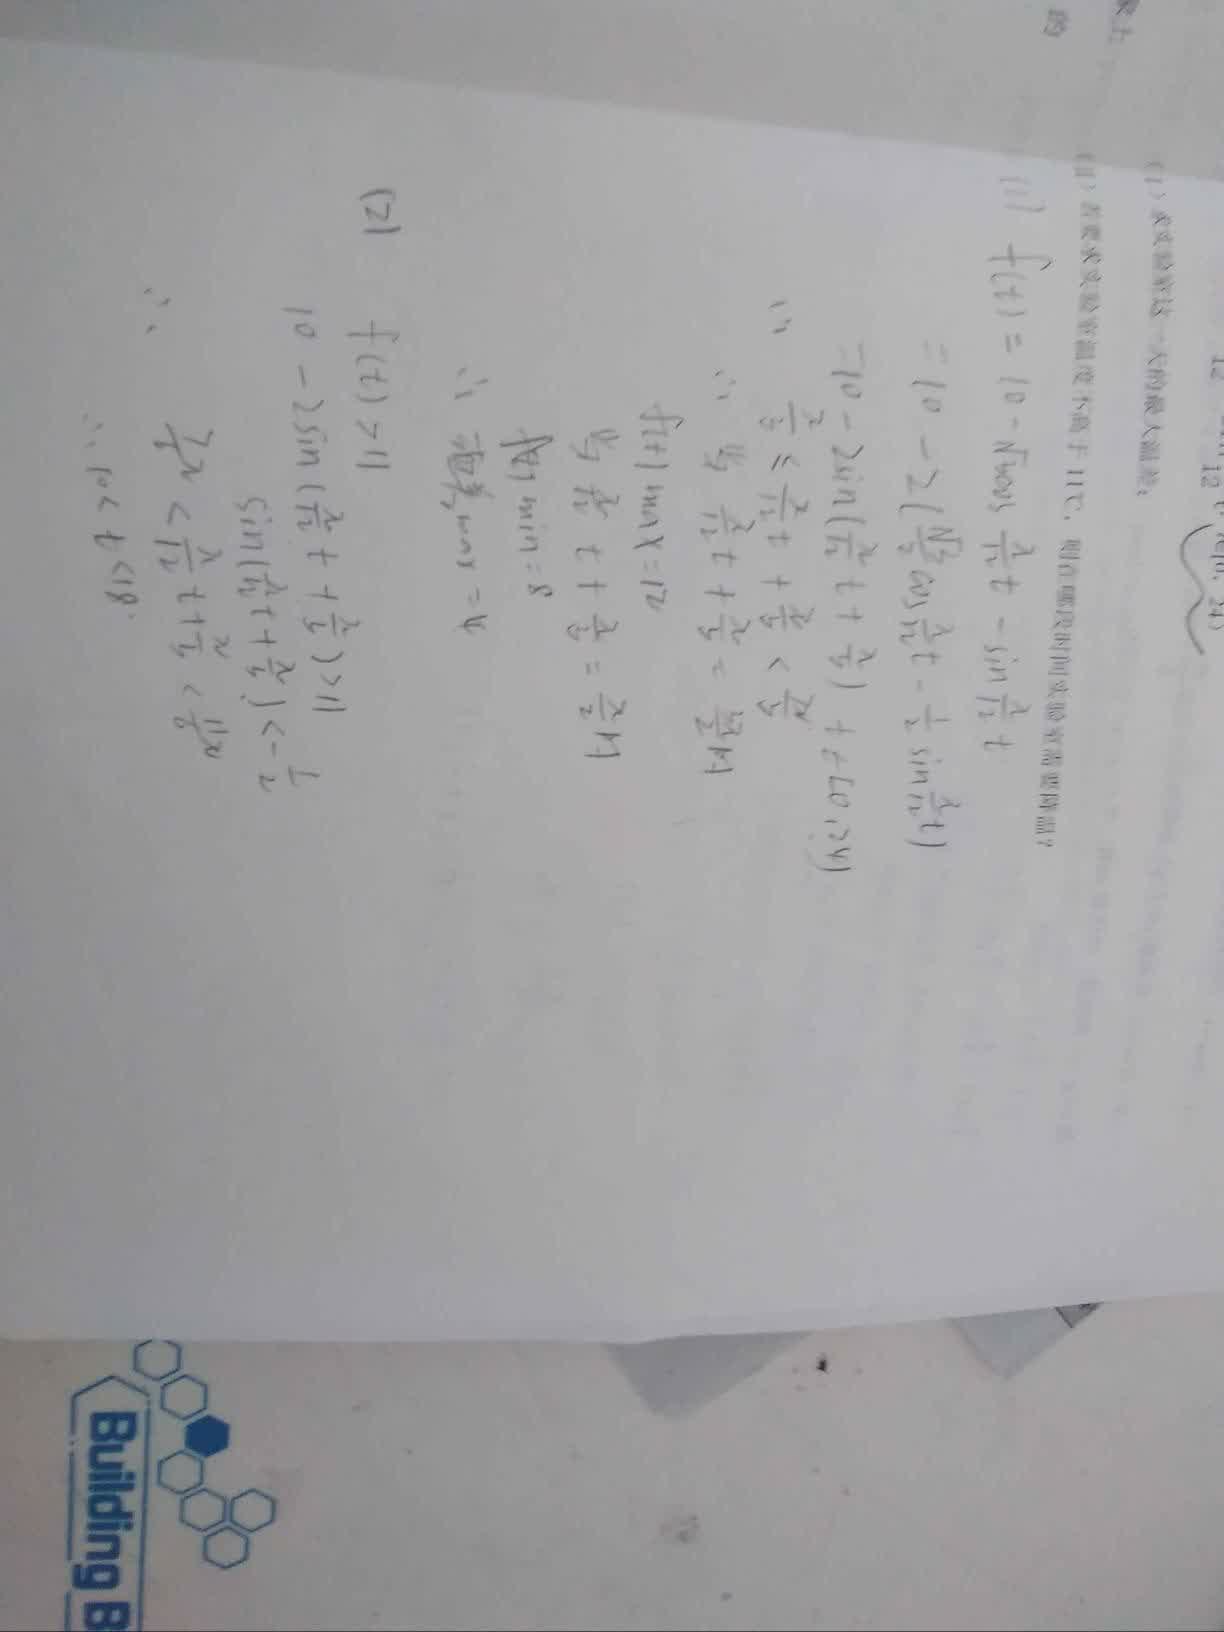 12 12 t, t∈[0, 24)
(Ⅰ) 求实验室这一天的最大温差;
(Ⅱ) 若要求实验室温度不高于 11℃, 则在哪段时间实验室需要降温?
的
(1) f(t) = 10 - √3cos π/12 t - sin π/12 t
= 10 - 2(√3/2 cos π/12 t - 1/2 sin π/12 t)
= 10 - 2sin(π/12 t + π/3) t∈[0,24)
∴ π/3 ≤ π/12 t + π/3 < 7π/3
∴ 当 π/12 t + π/3 = 时
f(t) max = 12
当 π/12 t + π/3 = π/2 时
f(t) min = 8
∴ max = 4
(2) f(t) > 11
10 - 2sin(π/12 t + π/3) > 11
sin(π/12 t + π/3) < - 1/2
∴ 7π/6 < π/12 t + π/3 < 11π/6
∴ 10 < t < 18.
Building B